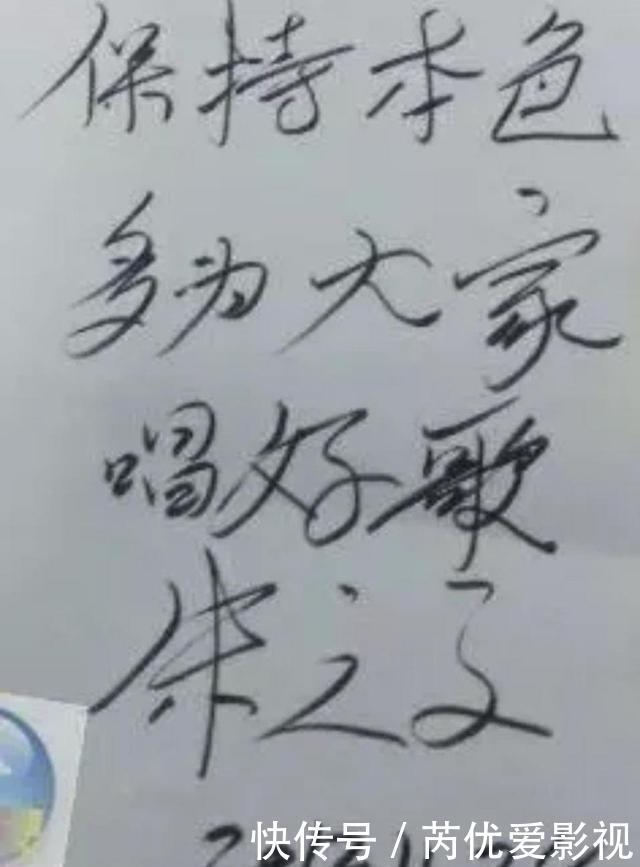 保持本色
多为大家
唱好歌
朱之文
快传号 / 芮优爱影视